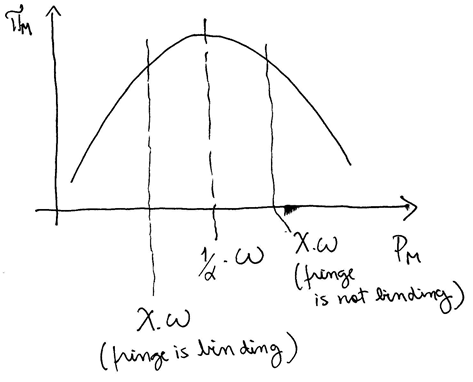 π_M
1/α · ω
χ.ω
(fringe
is not binding)
P_M
χ.ω
(fringe is binding)